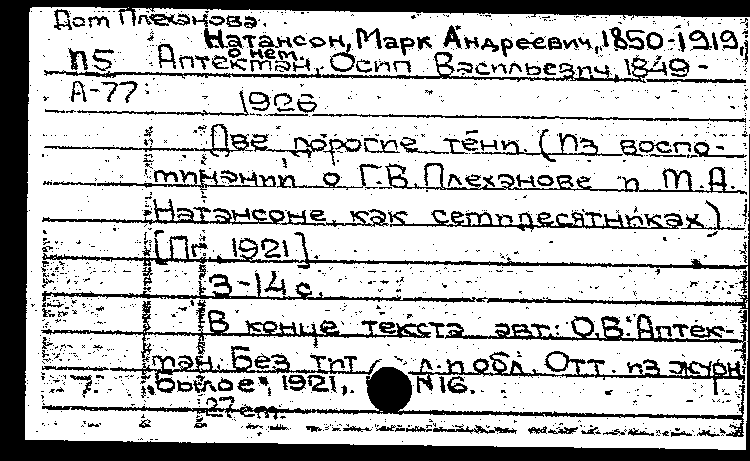 Дом Плеханова.
Натансон, Марк Андреевич, 1850-1919,
о нем
п5 Аптекман, Осип Васильевич, 1849-
А-77 1926
Две дорогие тени. (Из воспо-
минаний о Г.В. Плеханове и М.А.
Натансоне, как семидесятниках)
[Пг., 1921].
3-14 с.
В конце текста авт.: О.В. Аптек-
ман. Без тит. л. и обл. Отт. из журн
"Былое", 1921, N16.
7.
27 cm.